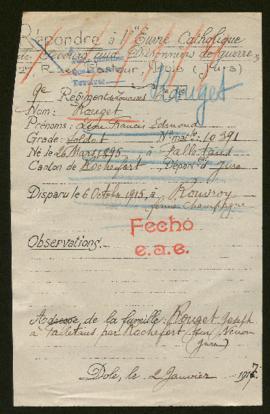 Répondre à l'Œuvre Catholique
de Secours aux Prisonniers de guerre,
Rue Pasteur, Dole (Jura)
9e Régiment
Rouget
Nom: Rouget
Prénoms: Léon Francis Edmond
Grade: Soldat N° mle: 10391
Né le Mars 1895 à Falletans
Canton de Rochefort Départ. Jura
Disparu le 6 Octobre 1915, à Rouvroy
Champagne
Fecho
e.a.e.
Observations
Adresse de la famille: Rouget Joseph
à Falletans par Rochefort sur Nenon
Jura
Dole, le 2 Janvier 1917.